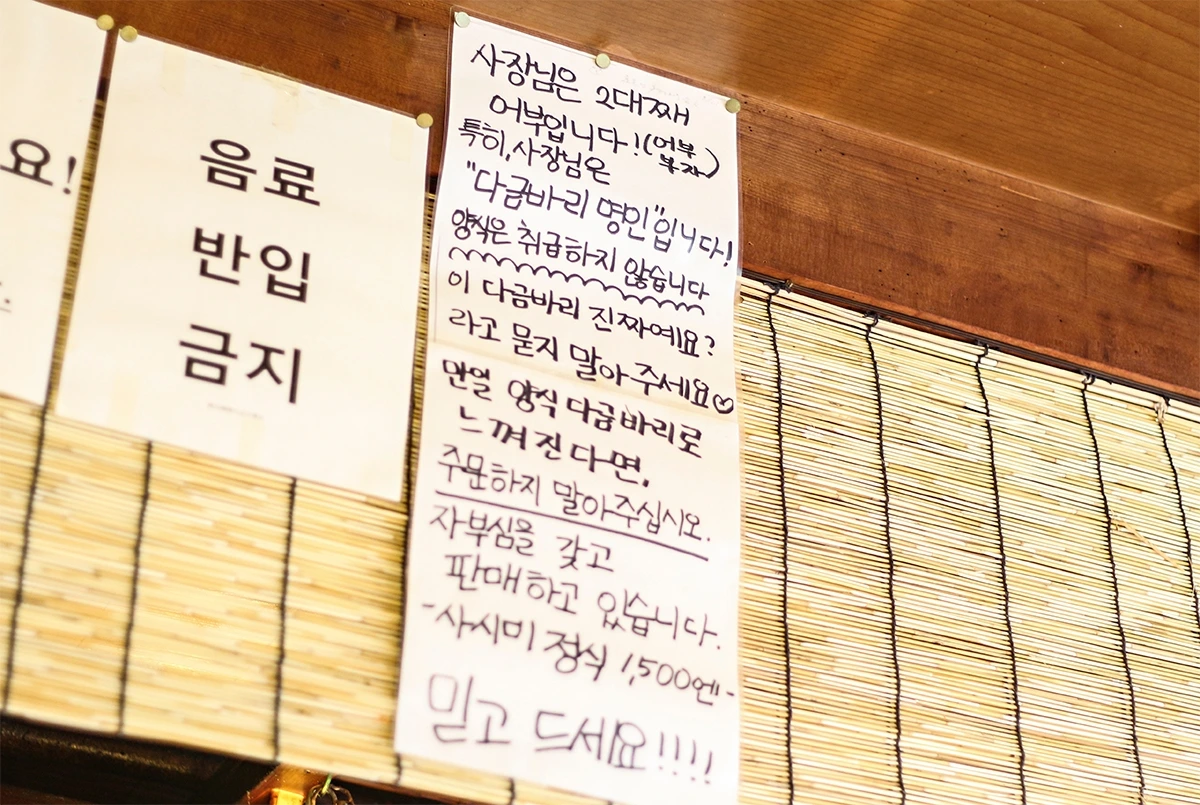 요!
음료
반입
금지
사장님은 2대째
어부입니다! (어부
부자)
특히, 사장님은
"다금바리 명인"입니다!
양식은 취급하지 않습니다
이 다금바리 진짜예요?
라고 묻지 말아주세요♡
만일 양식 다금바리로
느껴진다면,
주문하지 말아주십시오.
자부심을 갖고
판매하고 있습니다.
-사시미 정식 1,500엔-
믿고 드세요!!!!